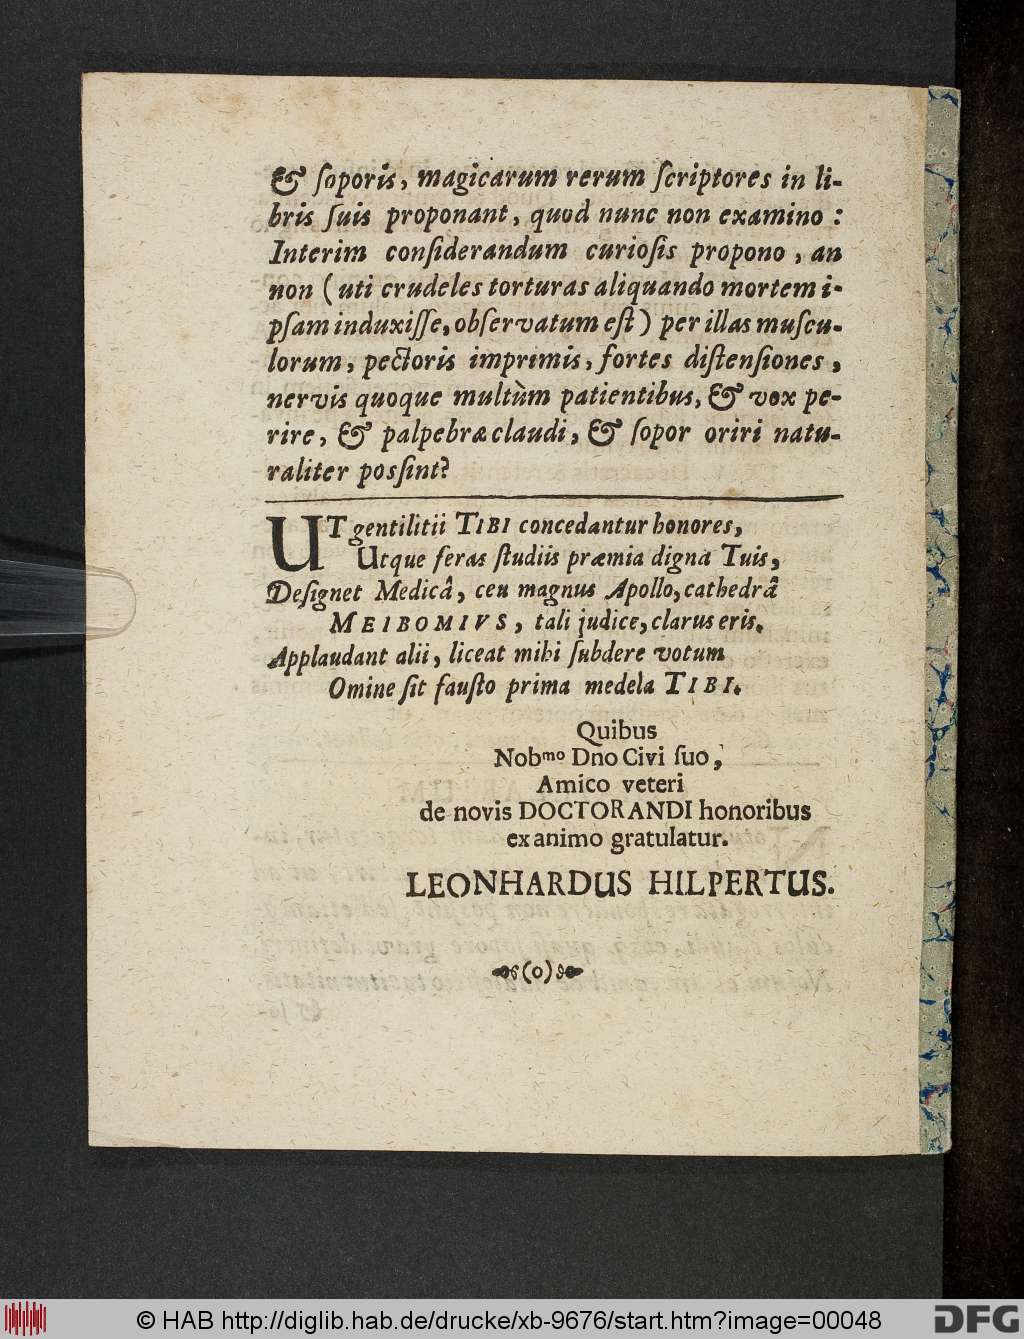 & ſoporis, magicarum rerum ſcriptores in li-
bris ſuis proponant, quod nunc non examino:
Interim conſiderandum curioſis propono, an
non (uti crudeles torturas aliquando mortem i-
pſam induxiſſe, obſervatum eſt) per illas muſcu-
lorum, pectoris imprimis, fortes diſtenſiones,
nervis quoque multùm patientibus, & vox pe-
rire, & palpebræ claudi, & ſopor oriri natu-
raliter posſint?
UT gentilitii TIBI concedantur honores,
Utque feras ſtudiis præmia digna Tuis,
Deſignet Medicâ, ceu magnus Apollo, cathedrâ
MEIBOMIVS, tali judice, clarus eris.
Applaudant alii, liceat mihi ſubdere votum
Omine ſit fauſto prima medela TIBI.
Quibus
Nobmo Dno Civi ſuo,
Amico veteri
de novis DOCTORANDI honoribus
ex animo gratulatur.
LEONHARDUS HILPERTUS.
(o)
© HAB http://diglib.hab.de/drucke/xb-9676/start.htm?image=00048
DFG